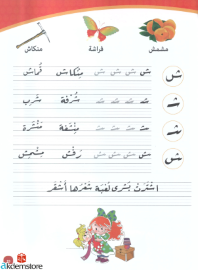 مشمش فراشة منكاش
ش ش ش ش ش منكاش قماش
شـ شـ شـ شـ شـ شرفة شرب
ـشـ ـشـ ـشـ ـشـ ـشـ منشفة منشرة
ـش ـش ـش ـش ـش رفش مشمش
اشترت بشرى لعبة شعرها أشقر
akdemstore